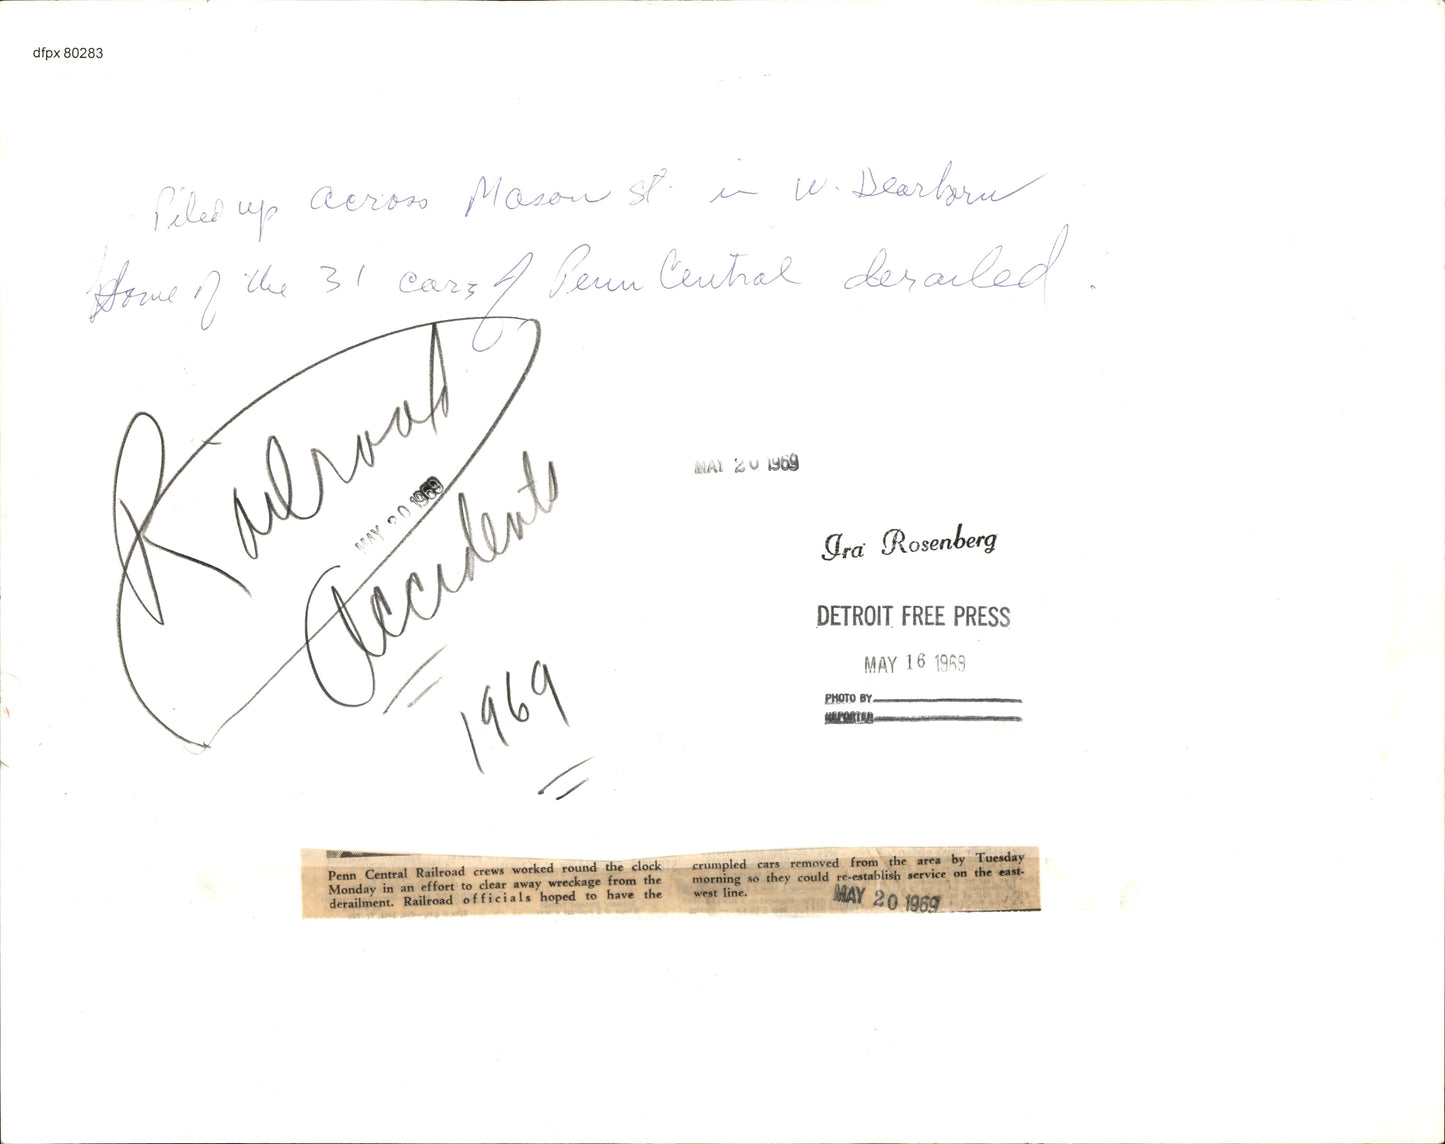 dfpx 80283
Piled up across Mason St. in W. Dearborn
Some of the 31 cars of Penn Central derailed.
Railroad
MAY 20 1969
Accidents
1969
MAY 20 1969
Ira Rosenberg
DETROIT FREE PRESS
MAY 16 1969
PHOTO BY
REPORTER
Penn Central Railroad crews worked round the clock
Monday in an effort to clear away wreckage from the
derailment. Railroad officials hoped to have the
crumpled cars removed from the area by Tuesday
morning so they could re-establish service on the east-
west line.
MAY 20 1969